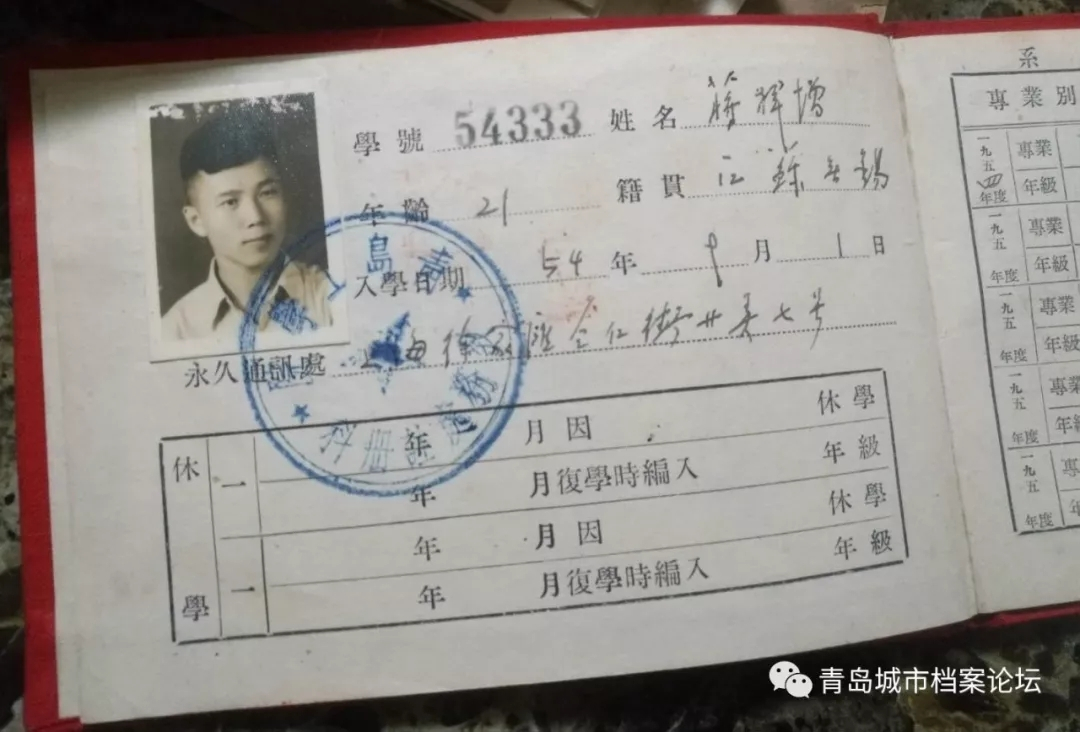 學號 54333 姓名 蔣輝增
年齡 21 籍貫 江蘇無錫
入學日期 54 年 9 月 1 日
永久通訊處 上海徐家匯 仁街廿 七号
休學
一
年 月因 休學
年 月復學時編入 年級
一
年 月因 休學
年 月復學時編入 年級
青島工學
科冊註
系
專業別
一九五四年度 專業
年級
一九五 年度 專業
年級
一九五 年度 專業
年級
一九五 年度 專業
年級
一九五 年度
青岛城市档案论坛